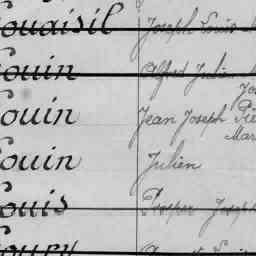 ouaisil Joseph Louis
ouin Alfred Julien
ouin Jean Joseph Pie
Mar
ouin Julien
ouis Prosper Joseph
oury